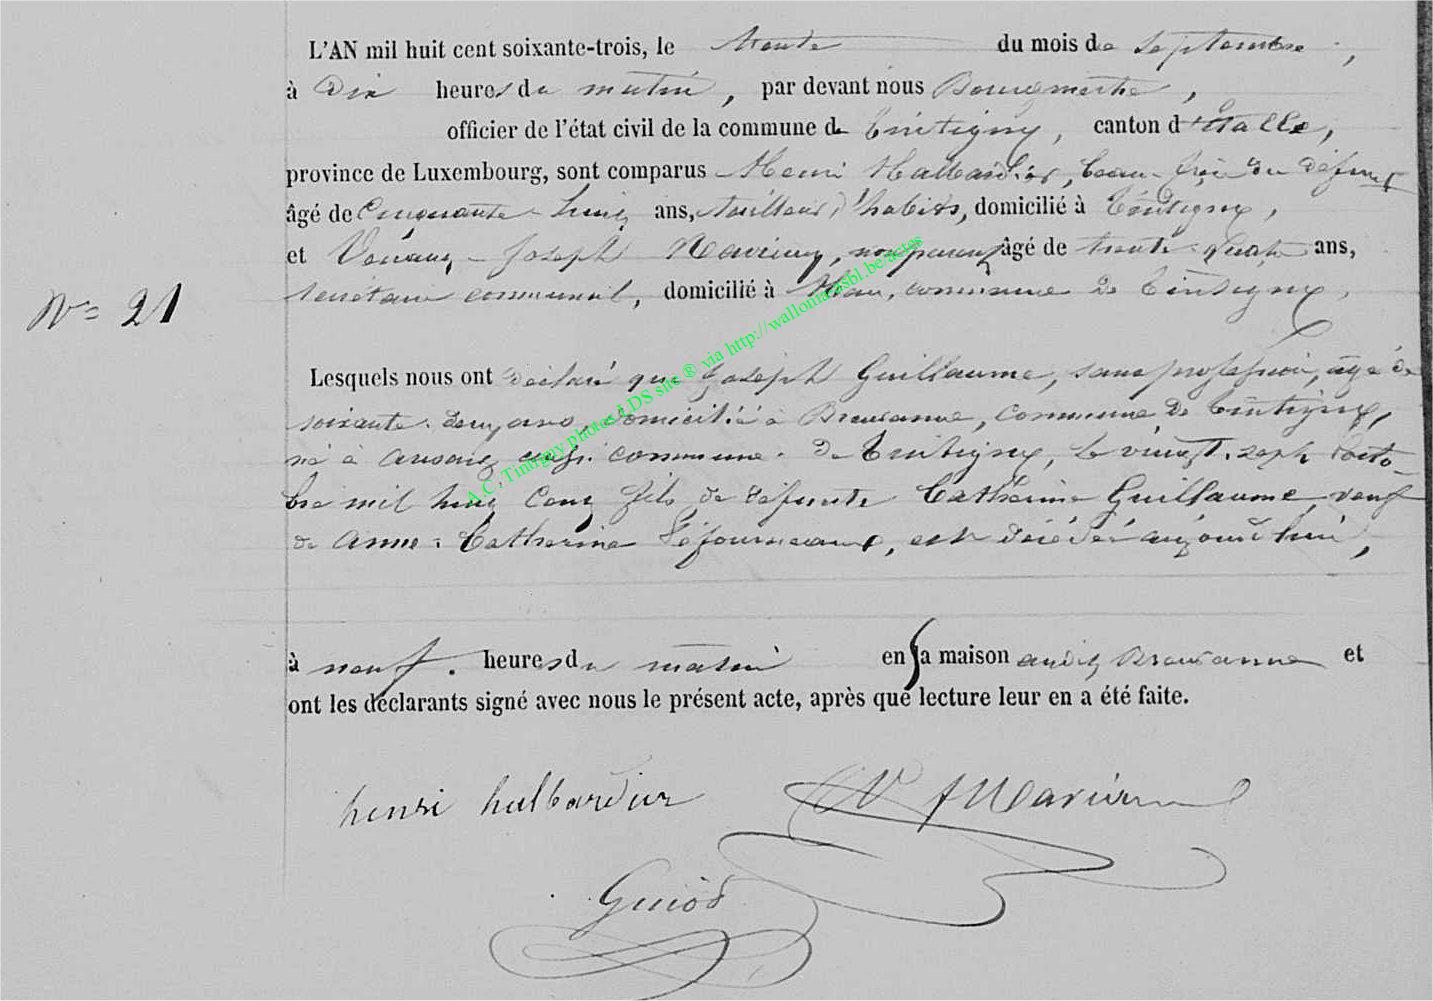 L'AN mil huit cent soixante-trois, le trente du mois de Septembre,
à Dix heures du matin, par devant nous Bourgmestre,
officier de l'état civil de la commune de Tintigny, canton d'Etalle,
province de Luxembourg, sont comparus Henri Halbardier, beau-frère du défunt
âgé de Cinquante-huit ans, tailleur d'habits, domicilié à Tintigny,
et Joseph non parent âgé de trente-quatre ans,
secrétaire communal, domicilié à Han, commune de Tintigny,
N° 21
Lesquels nous ont déclaré que Joseph Guillaume, sans profession, âgé de
soixante-deux ans, domicilié à Breuvanne, commune de Tintigny,
né à Ansart aussi commune de Tintigny, le vingt-sept Octo-
bre mil huit Cent fils de défunte Catherine Guillaume veuf
de Anne-Catherine Séjourneaux, est décédé aujourd'hui,
à neuf heures du matin en sa maison audit Breuvanne et
ont les déclarants signé avec nous le présent acte, après que lecture leur en a été faite.
henri halbardier
Guiot
A.C. Tintigny photos LDS site ® via http://wallonia-asbl.be/actes